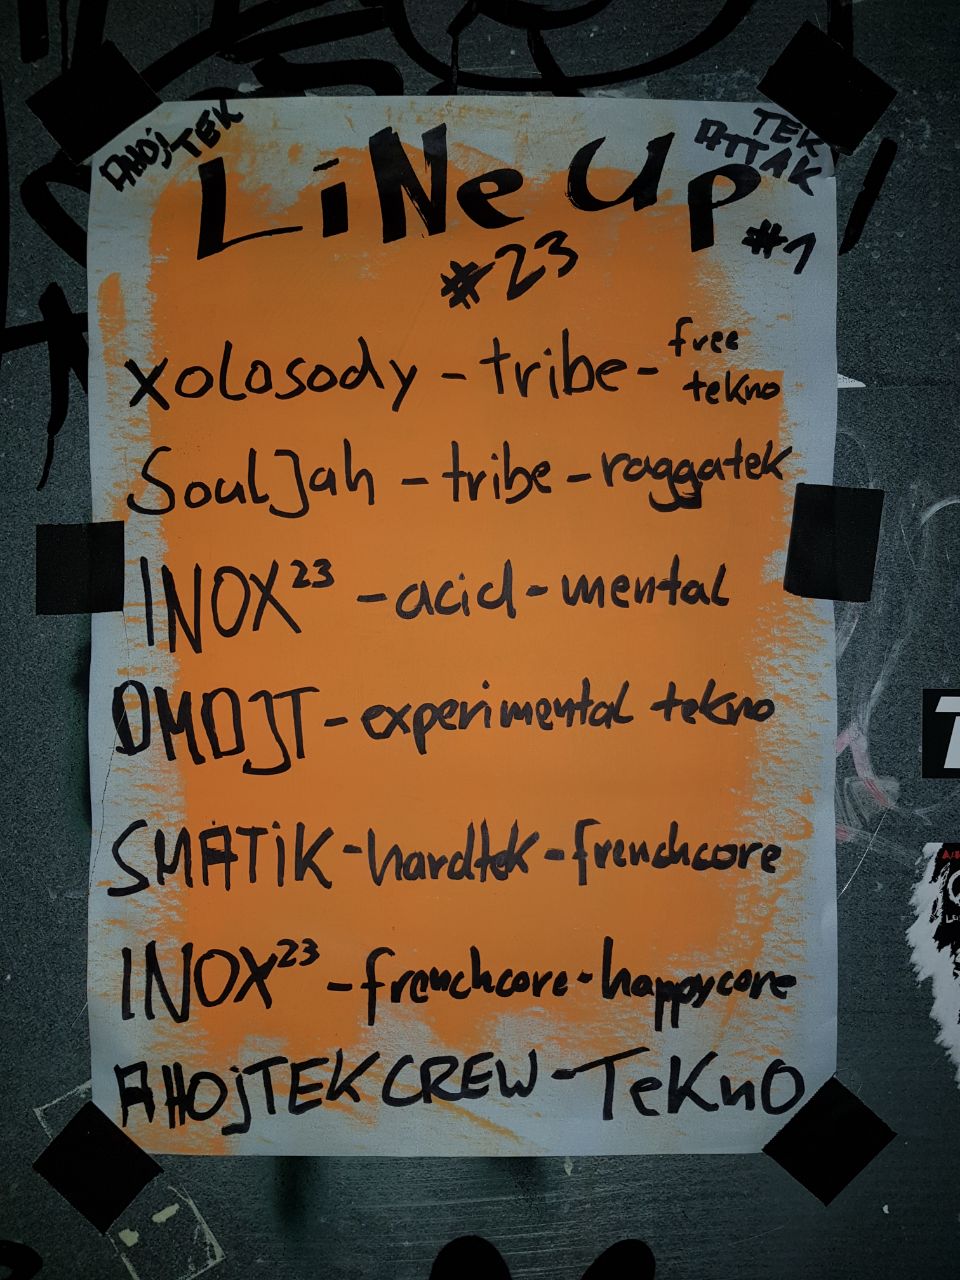 AHOjTEK
TEK
ATTAK
LiNe Up
#1
#23
Xolosody - tribe - free
tekno
SoulJah - tribe - raggatek
INOX²³ - acid - mental
DMDJT - experimental tekno
SMATiK - hardtek - frenchcore
INOX²³ - frenchcore - happycore
AHOjTEKCREW - TeKnO